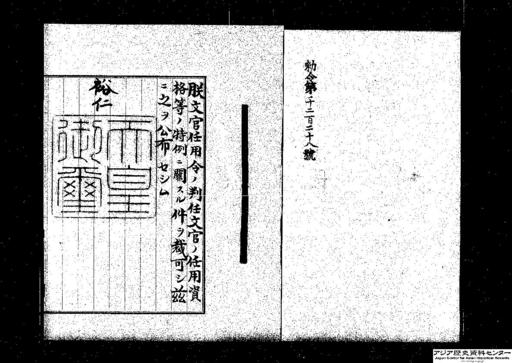 勅令第千二百二十八號
朕文官任用令ノ判任文官ノ任用資
格等ノ特例ニ關スル件ヲ裁可シ茲
ニ之ヲ公布セシム
裕仁
天皇御璽
アジア歴史資料センター
Japan Center for Asian Historical Records